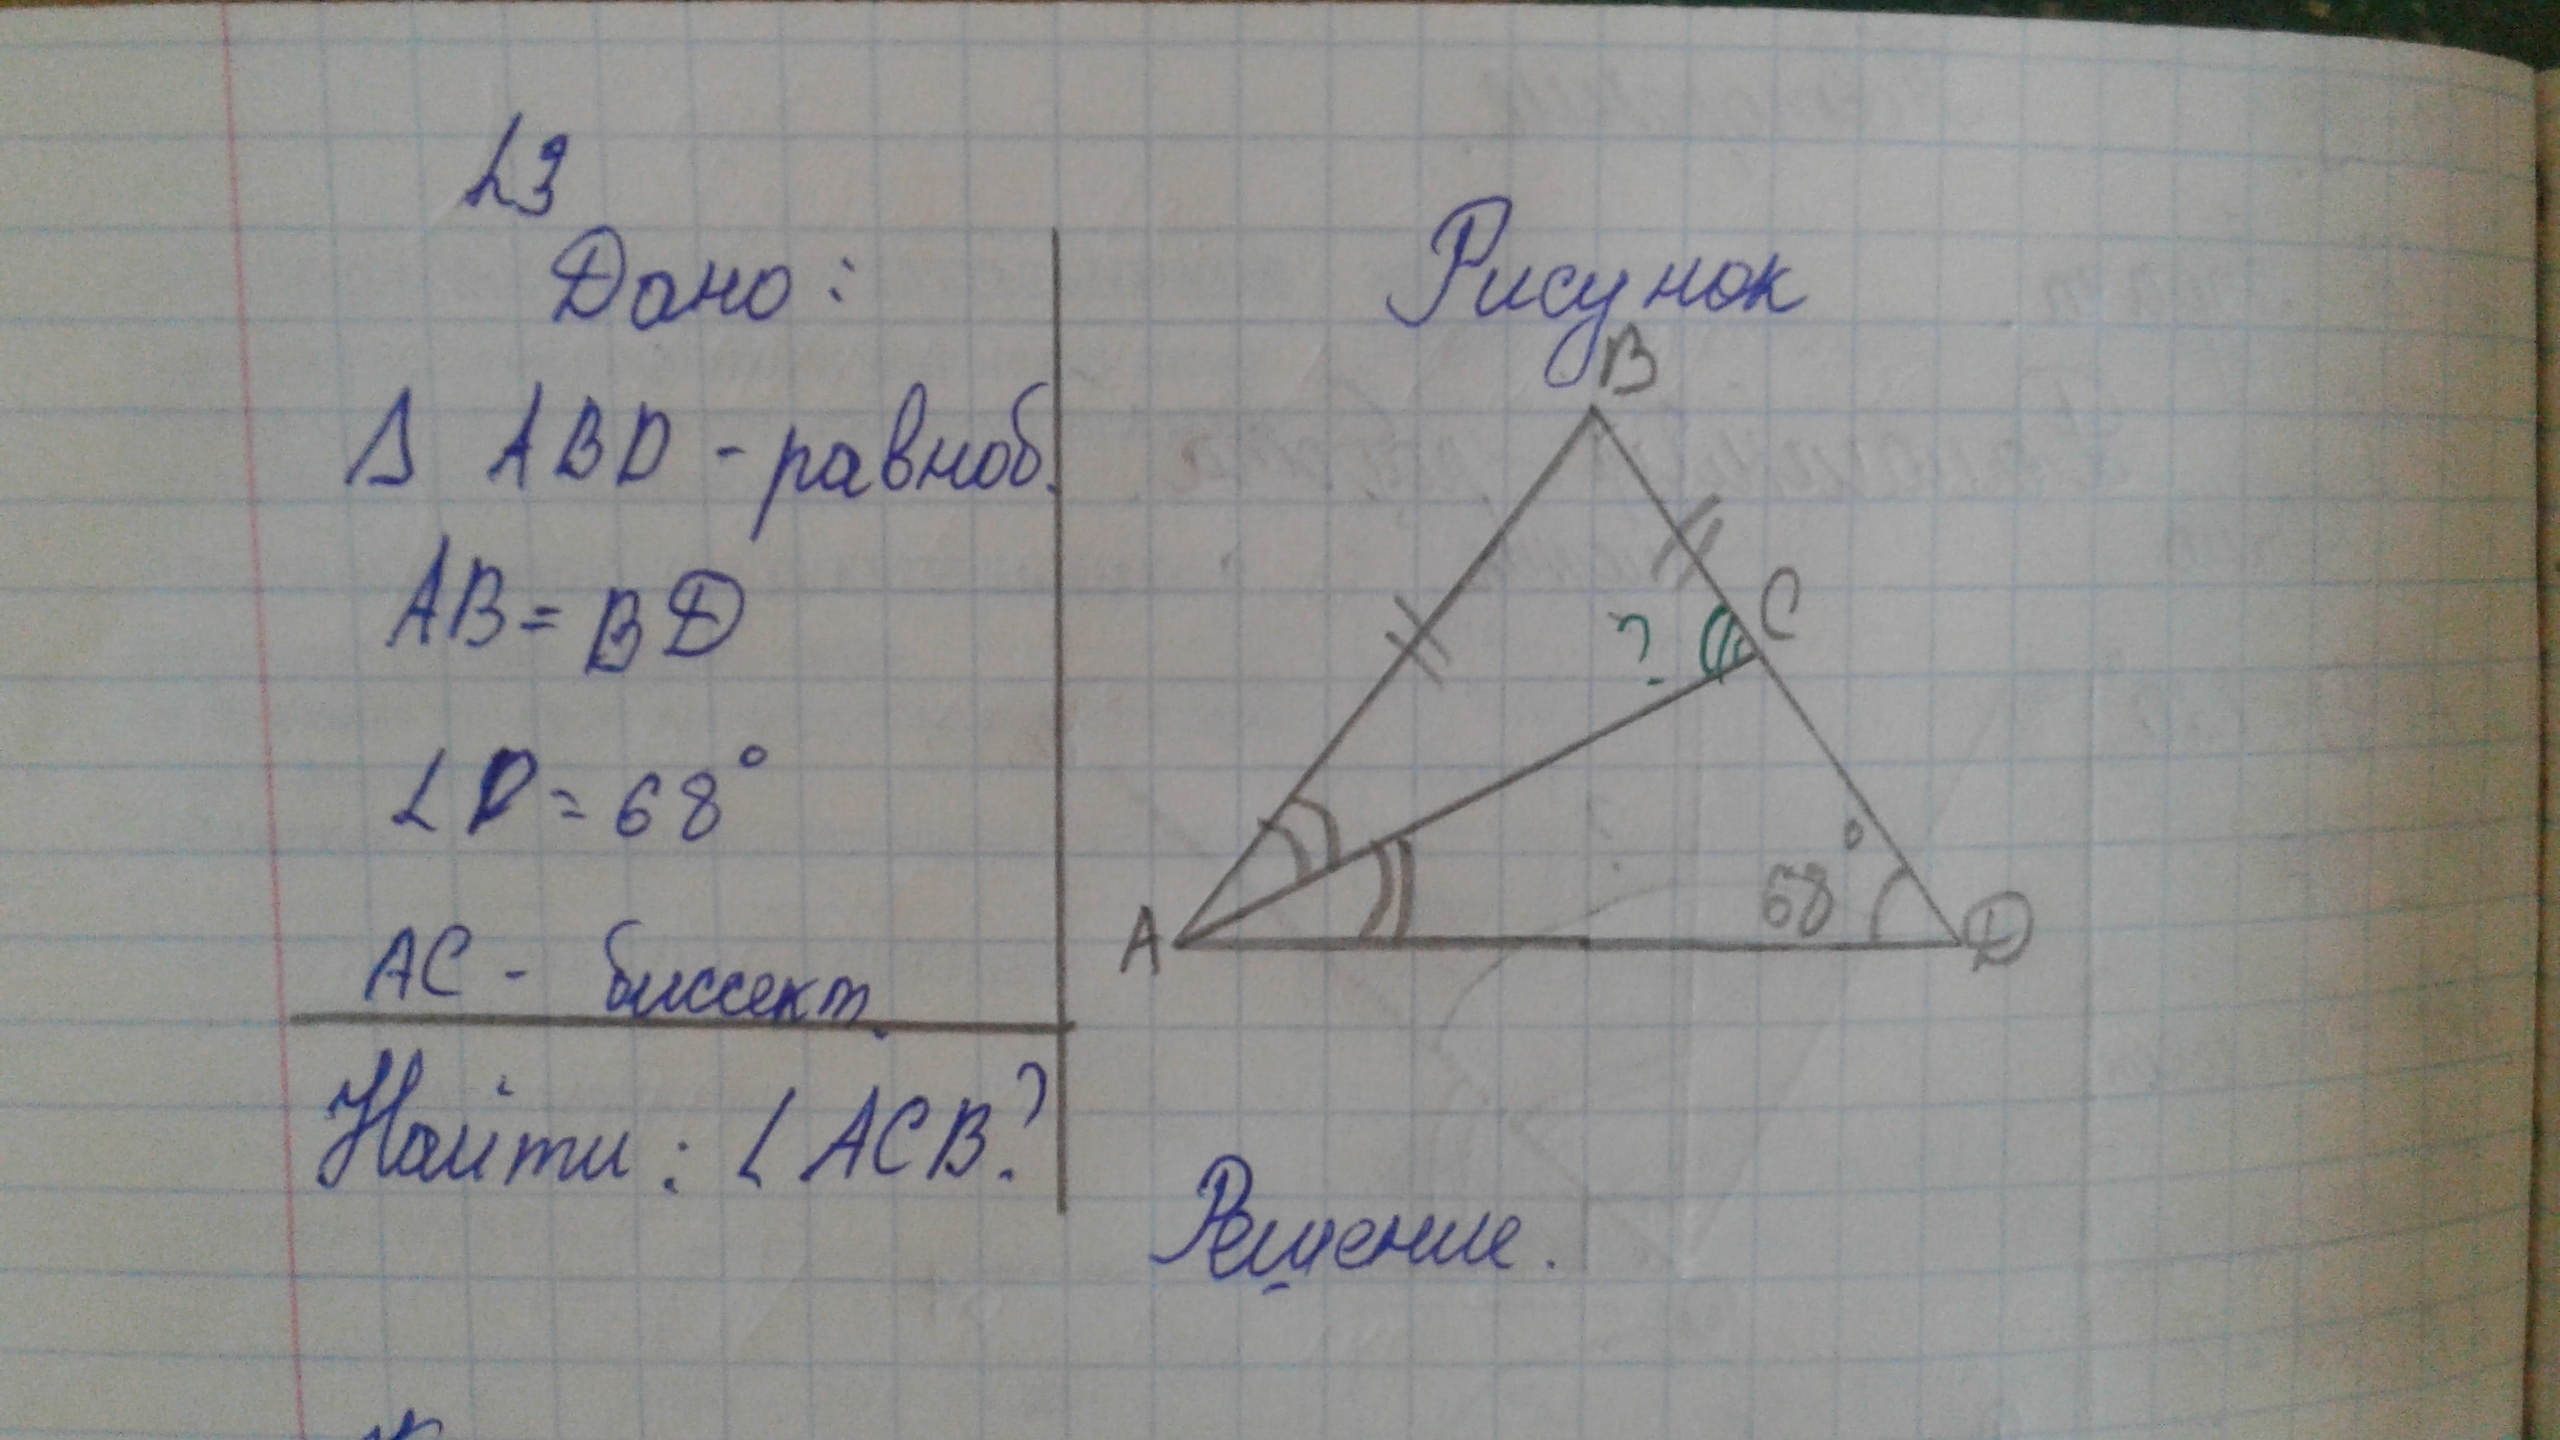 ∠3
Дано:
Δ ABD - равноб.
AB = BD
∠D = 68°
AC - биссект.
Найти: ∠ACB?
Рисунок
B
C
?
A
68°
D
Решение.